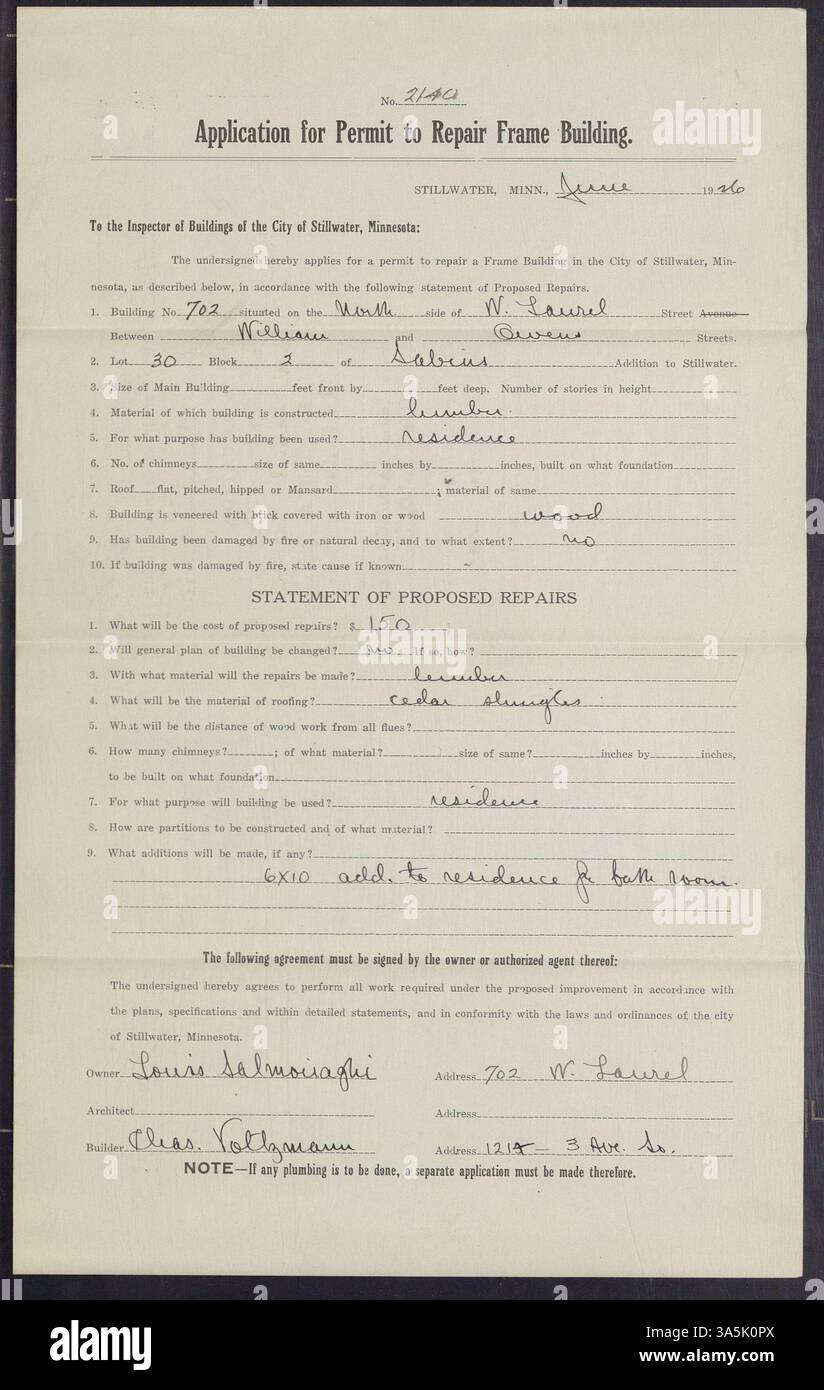 No. 2140
Application for Permit to Repair Frame Building.
STILLWATER, MINN., June 1926
To the Inspector of Buildings of the City of Stillwater, Minnesota:
The undersigned hereby applies for a permit to repair a Frame Building in the City of Stillwater, Min-
nesota, as described below, in accordance with the following statement of Proposed Repairs.
1. Building No. 702 situated on the North side of W. Laurel Street Avenue
Between William and Owens Streets.
2. Lot 30 Block 2 of Sabins Addition to Stillwater.
3. Size of Main Building feet front by feet deep. Number of stories in height
4. Material of which building is constructed lumber
5. For what purpose has building been used? residence
6. No. of chimneys size of same inches by inches, built on what foundation
7. Roof flat, pitched, hipped or Mansard ; material of same
8. Building is veneered with brick covered with iron or wood wood
9. Has building been damaged by fire or natural decay, and to what extent? no
10. If building was damaged by fire, state cause if known –
STATEMENT OF PROPOSED REPAIRS
1. What will be the cost of proposed repairs? $ 150
2. Will general plan of building be changed? no. if so, how?
3. With what material will the repairs be made? lumber
4. What will be the material of roofing? cedar shingles
5. What will be the distance of wood work from all flues?
6. How many chimneys? ; of what material? size of same? inches by inches,
to be built on what foundation
7. For what purpose will building be used? residence
8. How are partitions to be constructed and of what material?
9. What additions will be made, if any?
6x10 add. to residence for bath room.
The following agreement must be signed by the owner or authorized agent thereof:
The undersigned hereby agrees to perform all work required under the proposed improvement in accordance with
the plans, specifications and within detailed statements, and in conformity with the laws and ordinances of the city
of Stillwater, Minnesota.
Owner Louis Salmoiraghi Address 702 W. Laurel
Architect Address
Builder Chas. Voltzmann Address 1215 – 3 Ave. So.
NOTE—If any plumbing is to be done, a separate application must be made therefore.
alamy
Image ID: 3A5K0PX
www.alamy.com